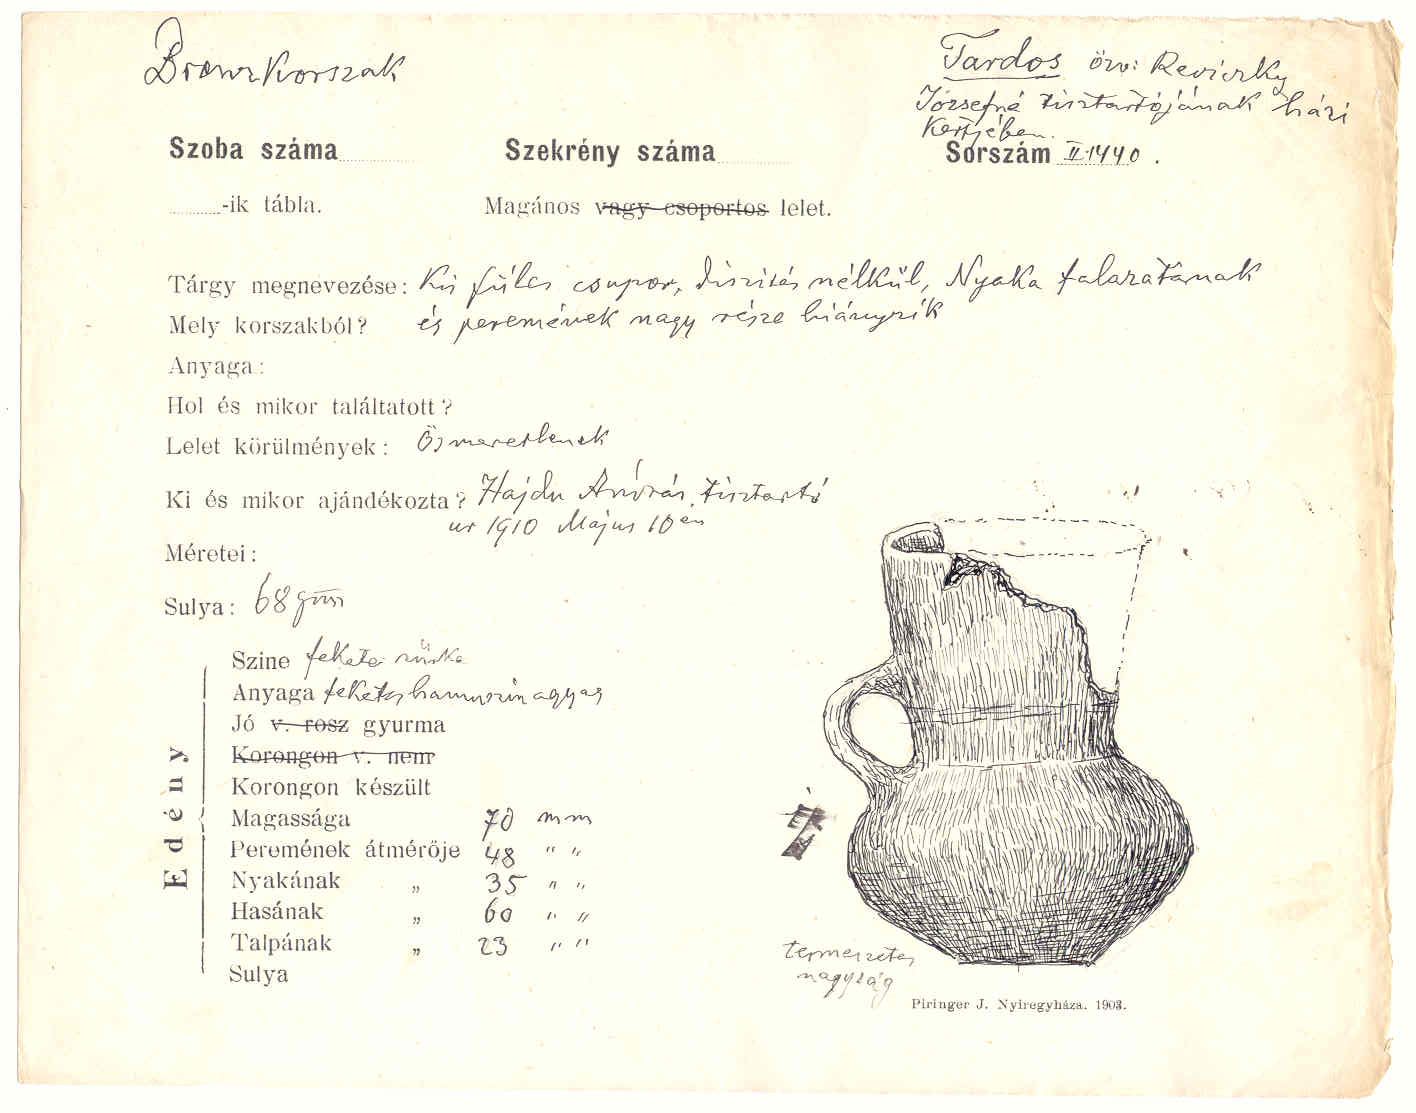 Bronzkorszak
Tardos özv: Reviczky
Józsefné tisztartójának házi
kertjében.
Szoba száma
Szekrény száma
Sorszám II.1440.
-ik tábla.
Magános vagy csoportos lelet.
Tárgy megnevezése: Kis füles csupor, diszités nélkül, Nyaka falazatának
Mely korszakból? és peremének nagy része hiányzik
Anyaga:
Hol és mikor találtatott?
Lelet körülmények: Ösmeretlenek
Ki és mikor ajándékozta? Hajdu András tisztartó
ur 1910 Május 10 én
Méretei:
Sulya: 68
Edény
Szine fekete szürke
Anyaga fekete, hamuszin agyag
Jó v. rosz gyurma
Korongon v. nem
Korongon készült
Magassága 70 mm
Peremének átmérője 48 " "
Nyakának „ 35 " "
Hasának „ 60 " "
Talpának „ 23 " "
Sulya
természetes
nagyság
Piringer J. Nyiregyháza. 1903.